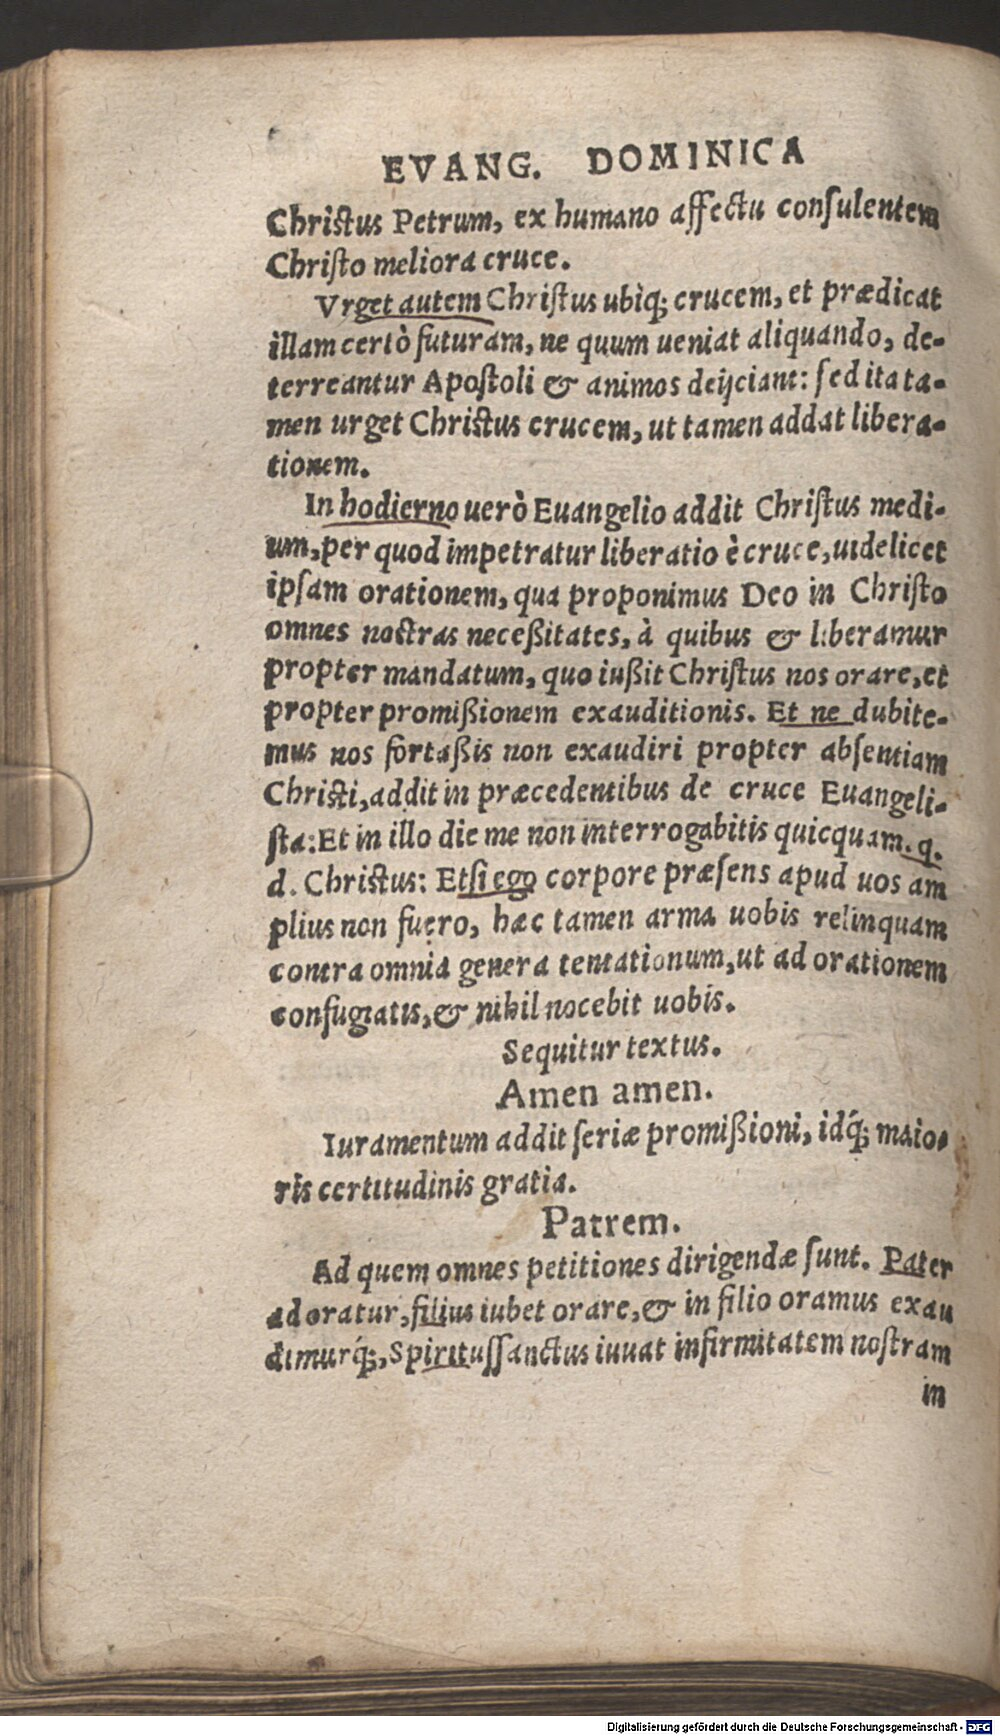 EVANG. DOMINICA
Christus Petrum, ex humano affectu consulentem
Christo meliora cruce.
Vrget autem Christus ubiq; crucem, et prædicat
illam certò futuram, ne quum ueniat aliquando, de-
terreantur Apostoli & animos deijciant: sed ita ta-
men urget Christus crucem, ut tamen addat libera-
tionem.
In hodierno uerò Euangelio addit Christus medi-
um, per quod impetratur liberatio è cruce, uidelicet
ipsam orationem, qua proponimus Deo in Christo
omnes nostras neceßitates, à quibus & liberamur
propter mandatum, quo iußit Christus nos orare, et
propter promißionem exauditionis. Et ne dubite-
mus nos fortaßis non exaudiri propter absentiam
Christi, addit in præcedentibus de cruce Euangeli-
sta: Et in illo die me non interrogabitis quicquam. q.
d. Christus: Etsi ego corpore præsens apud uos am
plius non fuero, hæc tamen arma uobis relinquam
contra omnia genera tentationum, ut ad orationem
confugiatis, & nihil nocebit uobis.
Sequitur textus.
Amen amen.
Iuramentum addit seriæ promißioni, idq́; maio-
ris certitudinis gratia.
Patrem.
Ad quem omnes petitiones dirigendæ sunt. Pater
adoratur, filius iubet orare, & in filio oramus exau
dimurq́;, Spiritussanctus iuuat infirmitatem nostram
in
Digitalisierung gefördert durch die Deutsche Forschungsgemeinschaft - DFG